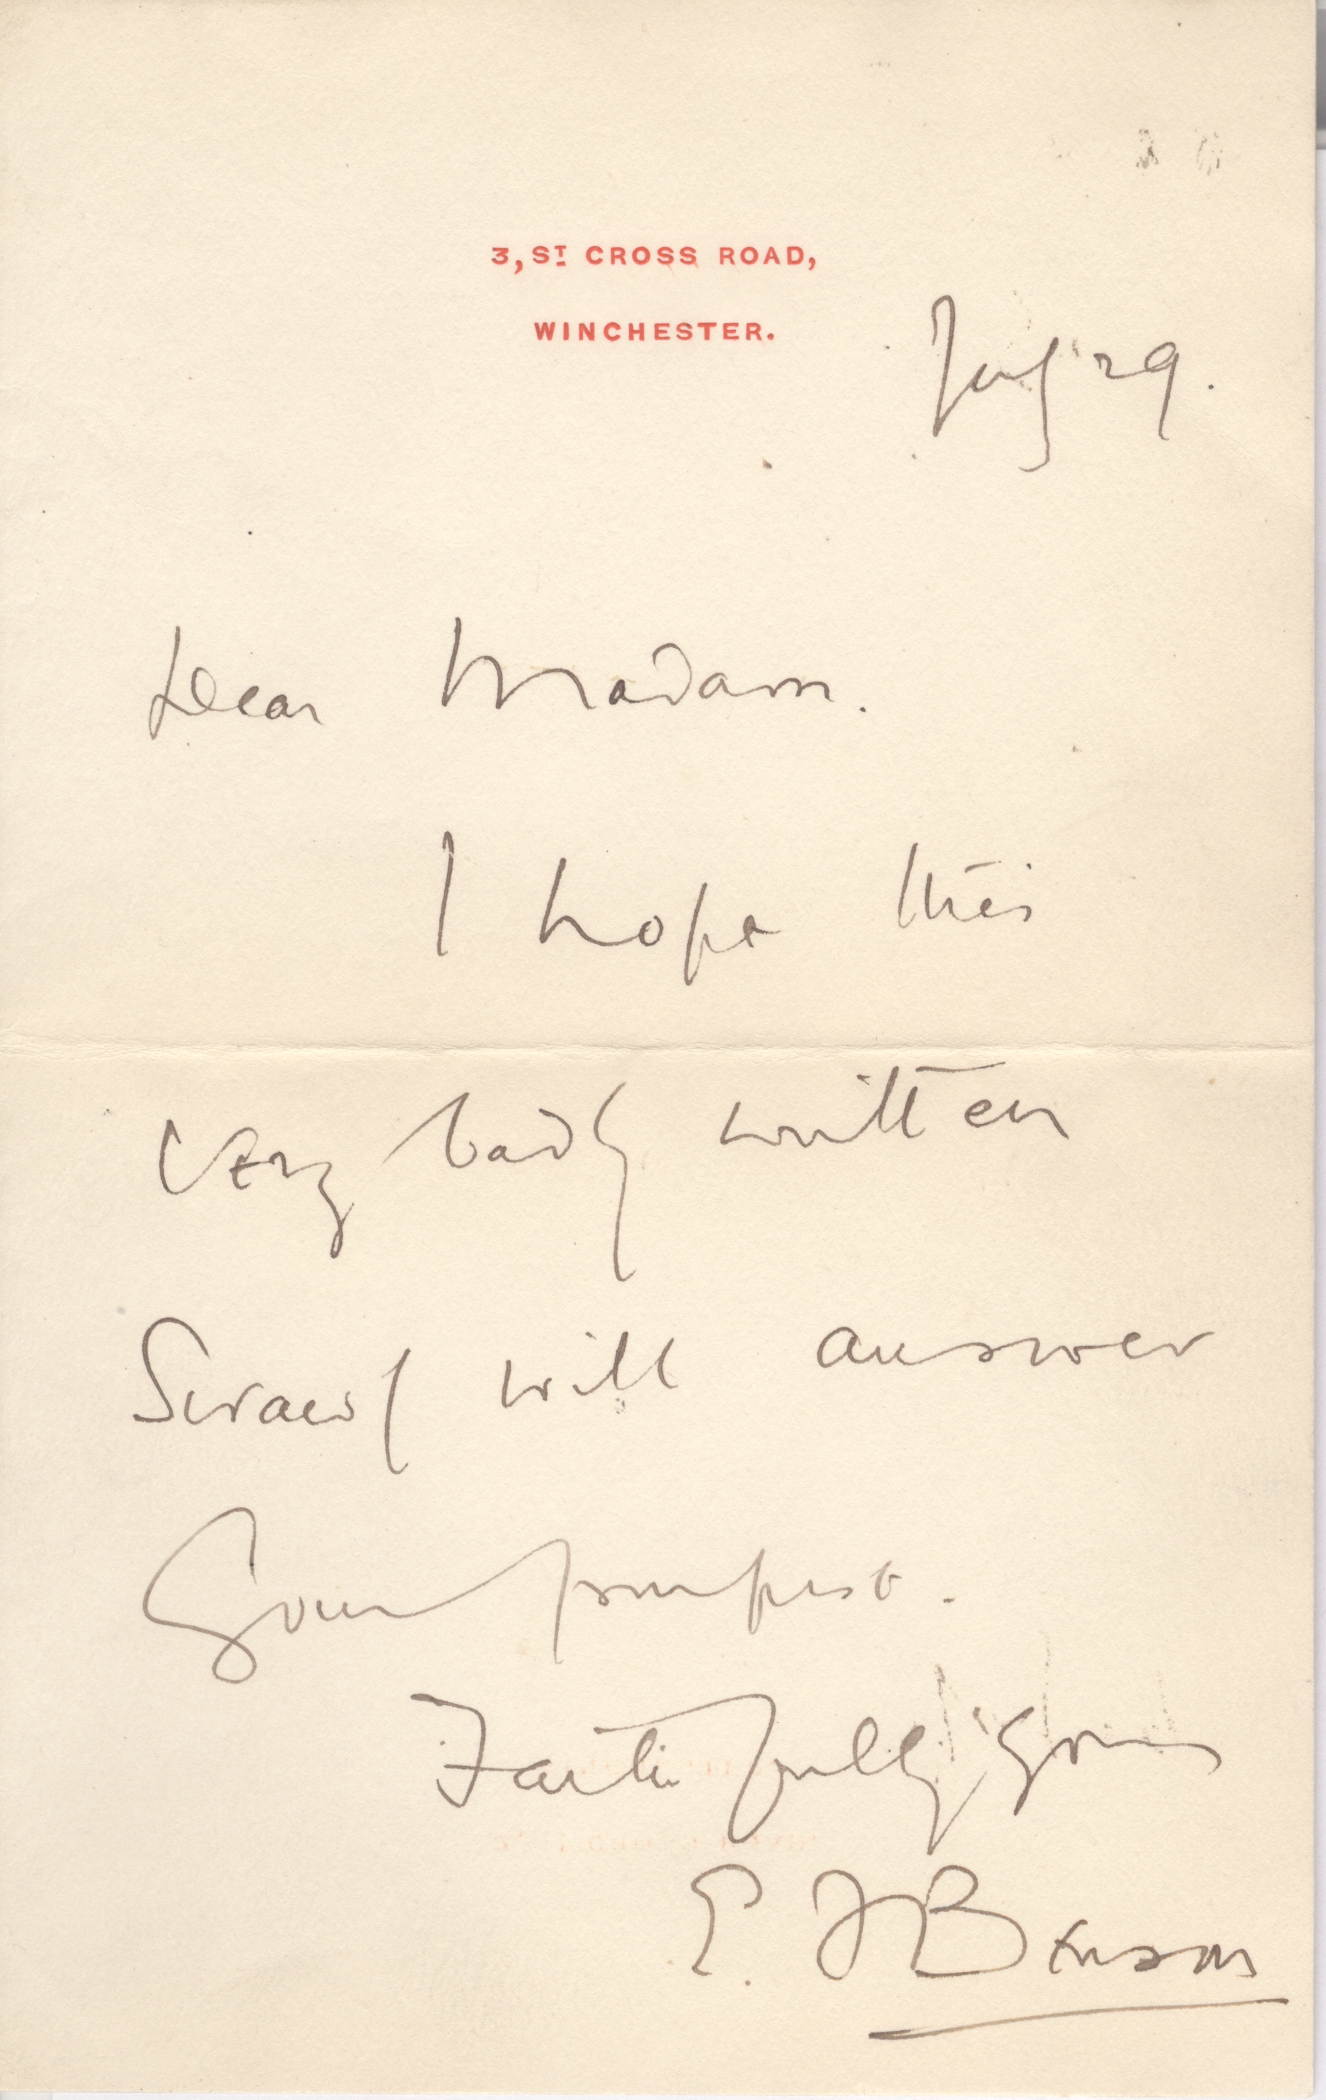 3, ST CROSS ROAD,
WINCHESTER.
July 29.
Dear Madam.
I hope this
very badly written
Scrawl will answer
your purpose.
Faithfully yours
E. F Benson